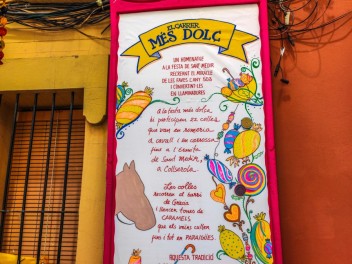 EL CARRER
MÉS DOLÇ
UN HOMENATGE
A LA FESTA DE SANT MEDIR
RECREANT EL MIRACLE
DE LES FAVES L'ANY 303
I CONVERTINT-LES
EN LLAMINADURES
A la festa més dolça
hi participen 22 colles
que van en romeria
a cavall i en carrossa
fins a l'Ermita
de Sant Medir,
a Collserola.
Les colles
recorren el barri
de Gràcia
i llencen tones de
CARAMELS
que els veïns cullen
fins i tot en PARAIGÜES.
AQUESTA TRADICIÓ